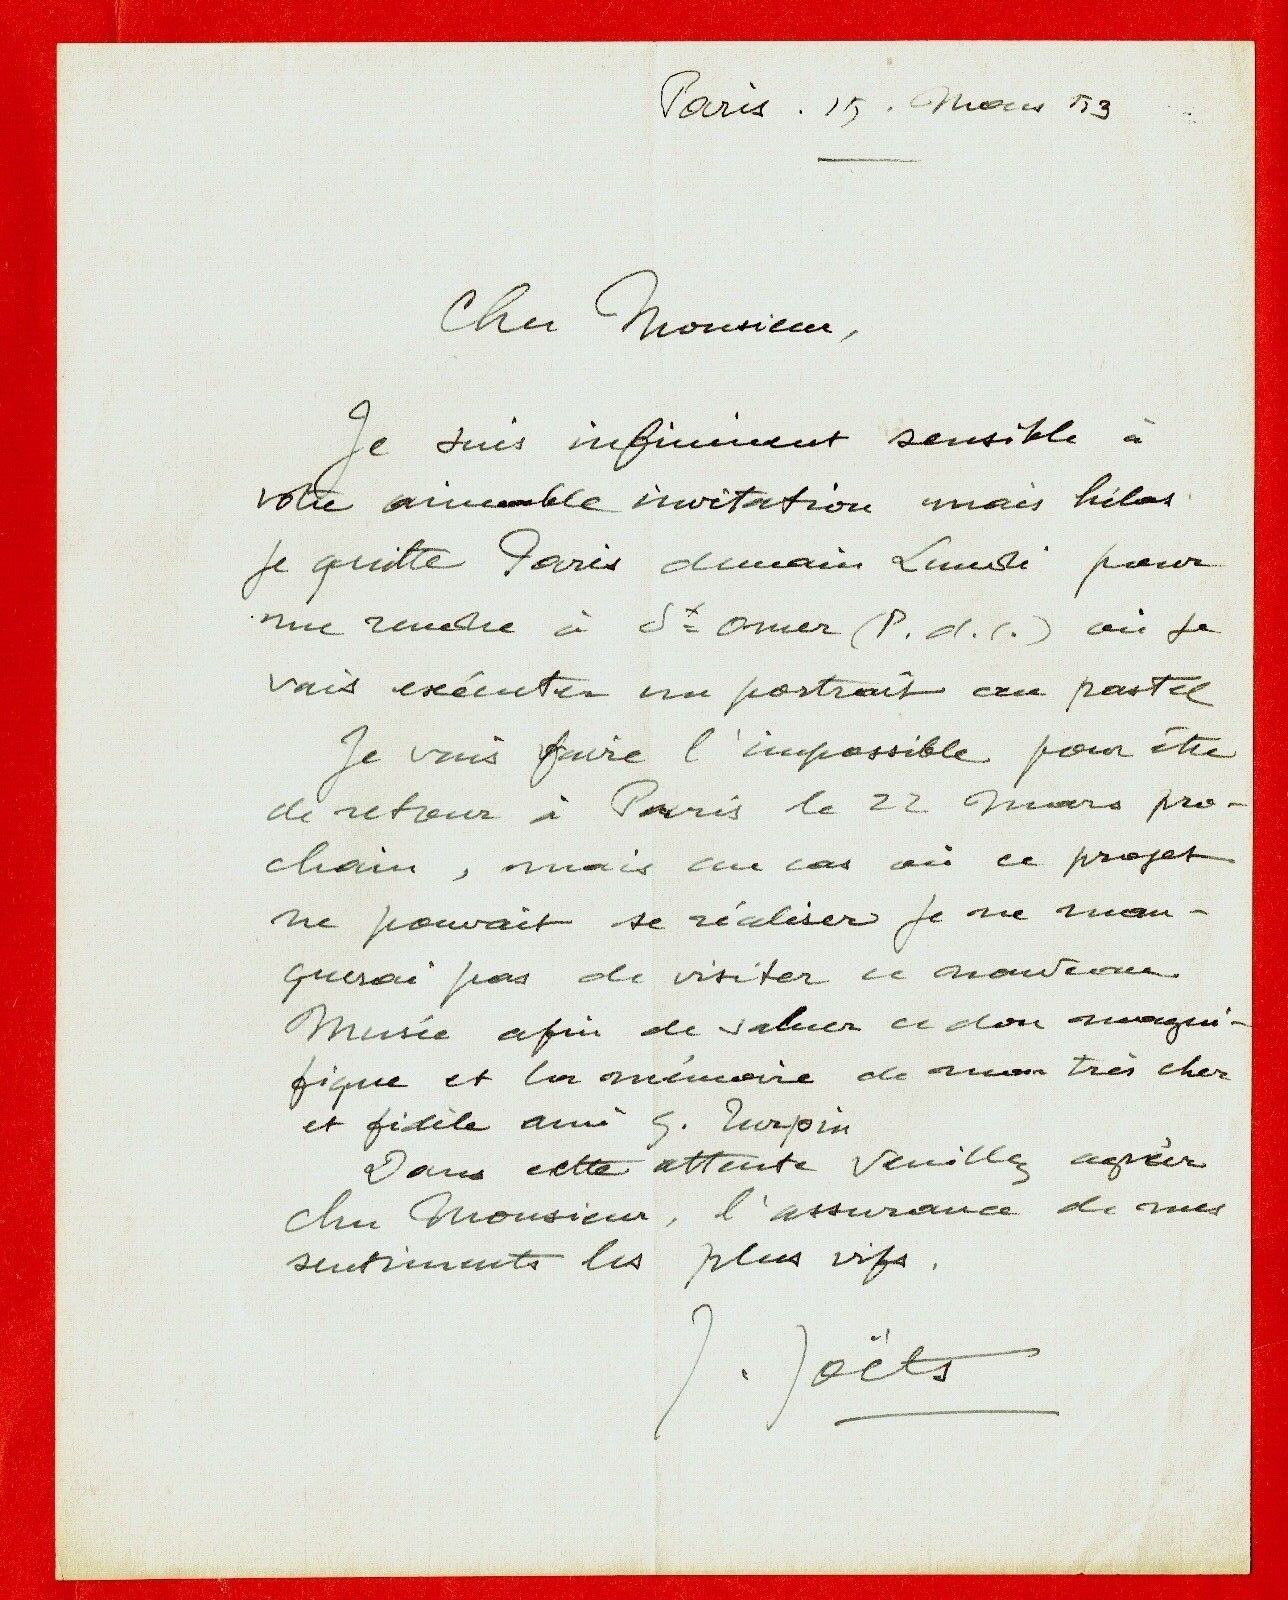 Paris . 15 . Mars 53
Cher Monsieur,
Je suis infiniment sensible à
votre aimable invitation mais hélas
je quitte Paris demain Lundi pour
me rendre à St Omer (P. d. C.) où je
vais exécuter un portrait au pastel
Je vais faire l'impossible pour être
de retour à Paris le 22 Mars pro-
chain, mais au cas où ce projet
ne pouvait se réaliser je ne man-
querai pas de visiter ce nouveau
Musée afin de saluer ce don magni-
fique et la mémoire de mon très cher
et fidèle ami G. Turpin
Dans cette attente Veuillez agréer
cher Monsieur, l'assurance de mes
sentiments les plus vifs.
J. Joëts